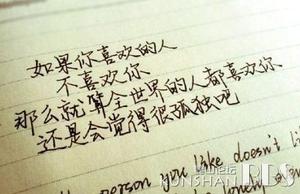 如果你喜欢的人
不喜欢你
那么就算全世界的人都喜欢你
还是会觉得很孤独吧
person you like doesn't l
JUNSHAN BBS